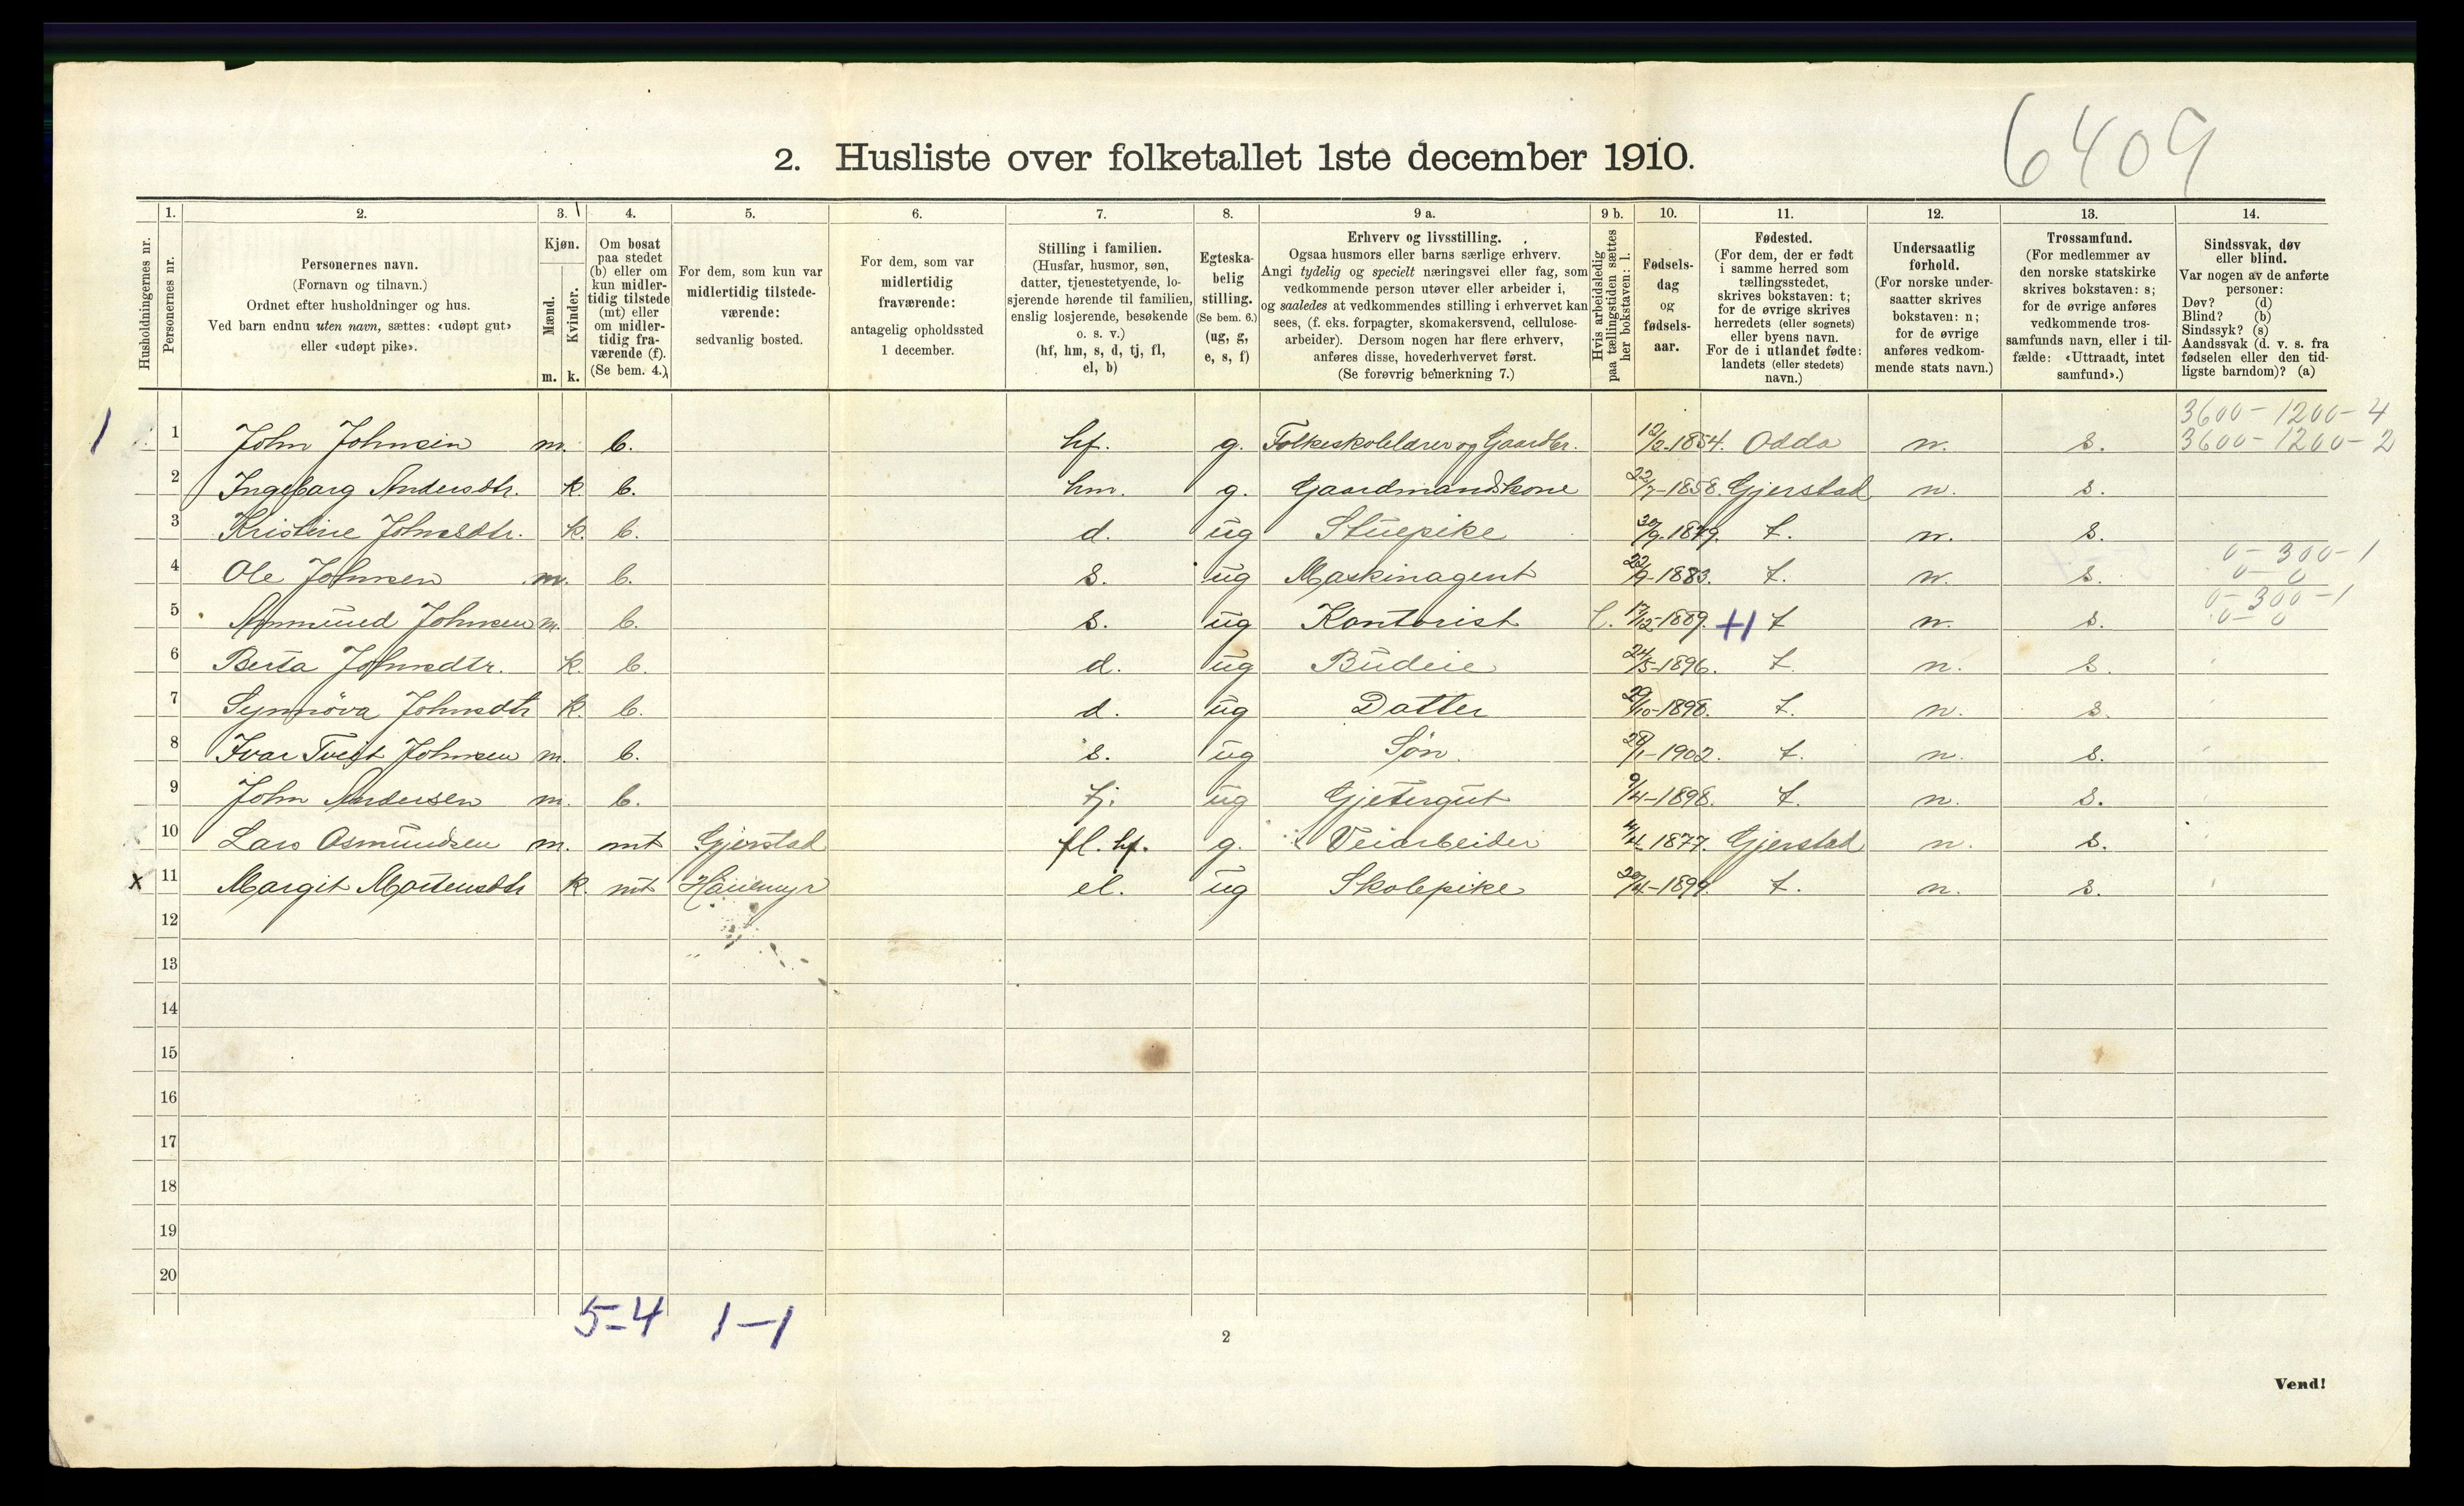 6409
2. Husliste over folketallet 1ste december 1910.
1. 2. 3. 4. 5. 6. 7. 8. 9 a. 9 b. 10. 11. 12. 13. 14.
Husholdningernes nr.
Personernes nr.
Personernes navn.
(Fornavn og tilnavn.)
Ordnet efter husholdninger og hus.
Ved barn endnu uten navn, sættes: «udøpt gut»
eller «udøpt pike».
Kjøn.
Mænd.
Kvinder.
m. k.
Om bosat
paa stedet
(b) eller om
kun midler-
tidig tilstede
(mt) eller
om midler-
tidig fra-
værende (f).
(Se bem. 4.)
For dem, som kun var
midlertidig tilstede-
værende:
sedvanlig bosted.
For dem, som var
midlertidig
fraværende:
antagelig opholdssted
1 december.
Stilling i familien.
(Husfar, husmor, søn,
datter, tjenestetyende, lo-
sjerende hørende til familien,
enslig losjerende, besøkende
o. s. v.)
(hf, hm, s, d, tj, fl,
el, b)
Egteska-
belig
stilling.
(Se bem. 6.)
(ug, g,
e, s, f)
Erhverv og livsstilling.
Ogsaa husmors eller barns særlige erhverv.
Angi tydelig og specielt næringsvei eller fag, som
vedkommende person utøver eller arbeider i,
og saaledes at vedkommendes stilling i erhvervet kan
sees, (f. eks. forpagter, skomakersvend, cellulose-
arbeider). Dersom nogen har flere erhverv,
anføres disse, hovederhvervet først.
(Se forøvrig bemerkning 7.)
Hvis arbeidsledig
paa tællingstiden sættes
her bokstaven: l.
Fødsels-
dag
og
fødsels-
aar.
Fødested.
(For dem, der er født
i samme herred som
tællingsstedet,
skrives bokstaven: t;
for de øvrige skrives
herredets (eller sognets)
eller byens navn.
For de i utlandet fødte:
landets (eller stedets)
navn.)
Undersaatlig
forhold.
(For norske under-
saatter skrives
bokstaven: n;
for de øvrige
anføres vedkom-
mende stats navn.)
Trossamfund.
(For medlemmer av
den norske statskirke
skrives bokstaven: s;
for de øvrige anføres
vedkommende tros-
samfunds navn, eller i til-
fælde: «Uttraadt, intet
samfund».)
Sindssvak, døv
eller blind.
Var nogen av de anførte
personer:
Døv? (d)
Blind? (b)
Sindssyk? (s)
Aandssvak (d. v. s. fra
fødselen eller den tid-
ligste barndom)? (a)
3600-1200-4
1 1 John Johnsen m. b. hf. g. Folkeskolelærer og Gaardbr. 12/2-1854. Odda n. s. 3600-1200-2
2 Ingeborg Andersdtr. k. b. hm. g. Gaardmandskone 22/7-1858. Gjerstad n. s.
3 Kristine Johnsdtr. k. b. d. ug Stuepike 30/9-1879. t. n. s.
0-300-1
4 Ole Johnsen m. b. s. ug Maskinagent 22/9-1883. t. n. s. 0-0
0-300-1
5 Amund Johnsen m. b. s. ug Kontorist l. 17/12-1889. +1 t n. s. 0-0
6 Berta Johnsdtr. k. b. d. ug Budeie 24/5-1896. t. n. s.
7 Synnöva Johnsdtr k. b. d. ug Datter 29/10-1898. t. n. s.
8 Ivar Tveit Johnsen m. b. s. ug Søn. 28/1-1902. t. n. s.
9 John Andersen m. b. tj. ug Gjetergut 9/4-1898. t. n. s.
10 Lars Osmundsen m. mt Gjerstad fl. hf. g. Veiarbeider 1877. Gjerstad n. s.
x 11 Margit Mortensdtr k. mt el. ug Skolepike 20/4-1899. t. n. s.
12
13
14
15
16
17
18
19
20
5-4 1-1
2
Vend!